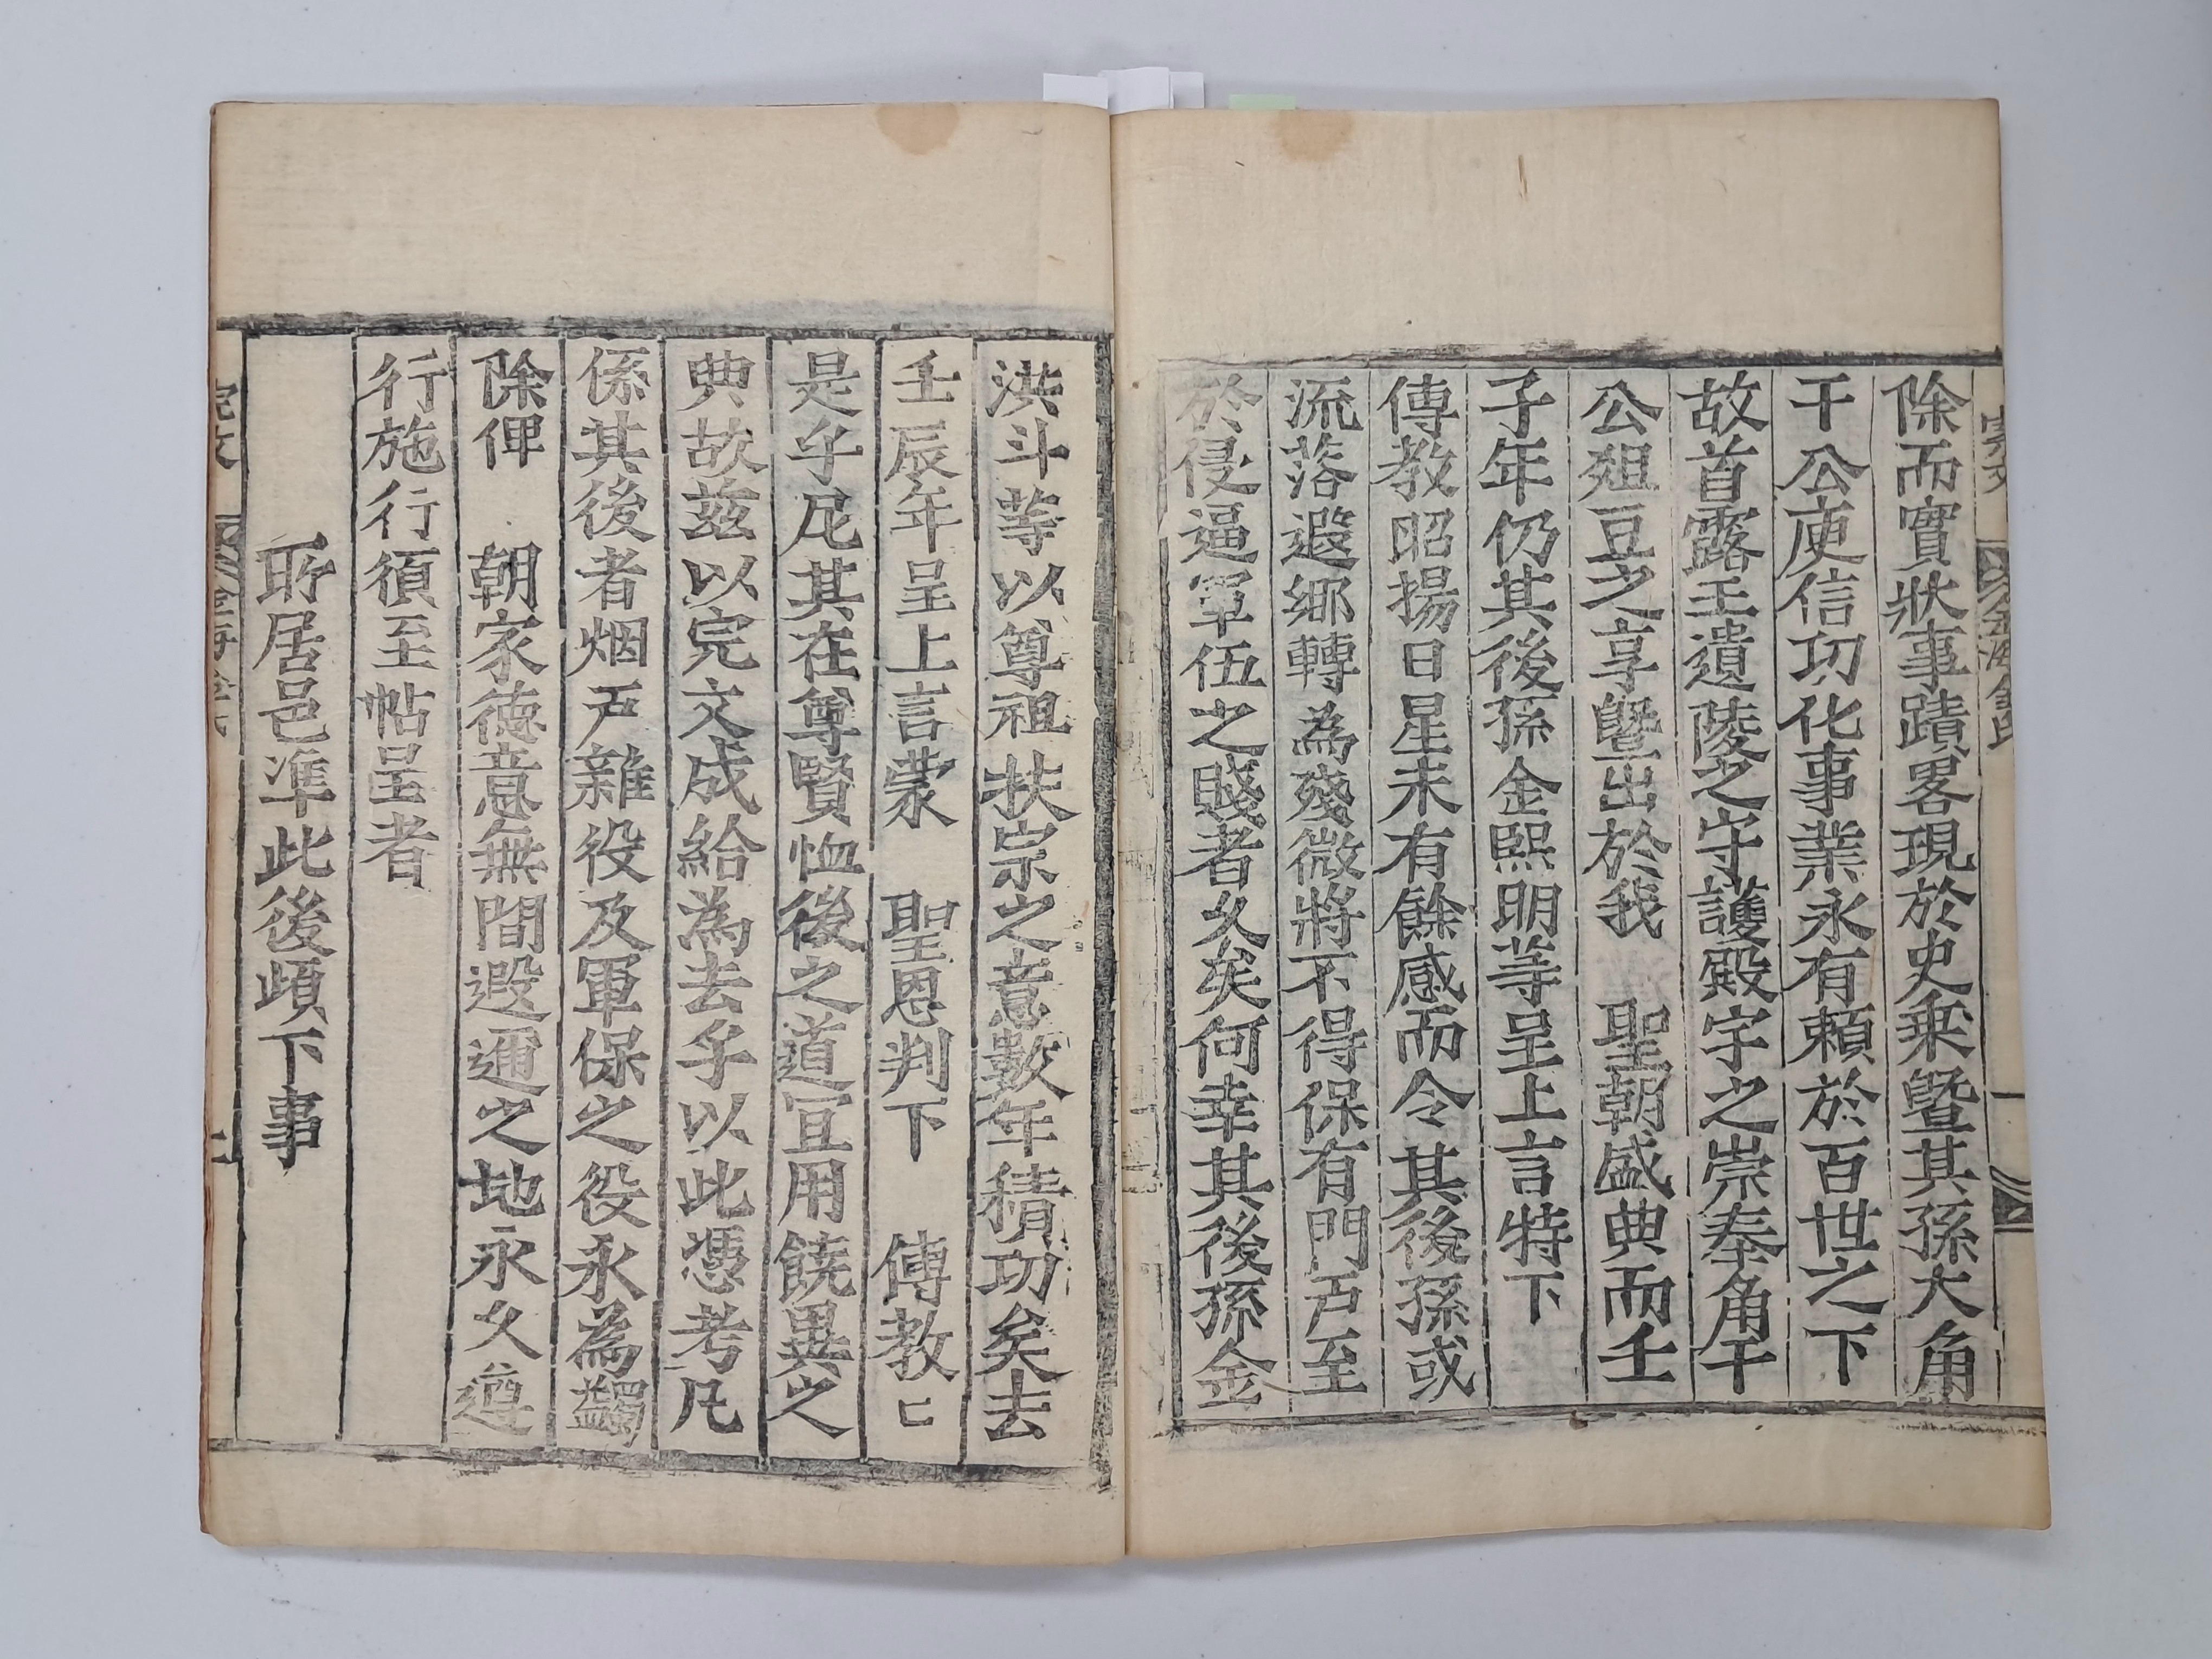 除而實狀事蹟畧現於史乗曁其孫大角
干公庾信功化事業永有賴於百世之下
故首露王遺陵之守護殿宇之崇奉角干
公爼豆之享曁出於我 聖朝盛典而壬
子年仍其後孫金熙明等呈上言特下
傳教昭揚日星未有餘感而令其後孫或
流落遐鄉轉為殘微將不得保有門戸至
於侵逼軍伍之賤者久矣何幸其後孫金
洪斗等以尊祖扶宗之意數年積功矣去
壬辰年呈上言蒙 聖恩判下 傳教㔾
是乎㞷其在尊賢恤後之道冝用饒異之
典故兹以完文成給為去乎以此憑考凡
係其後者烟戸雜役及軍保之役永為蠲
除俾 朝家德意無間遐邇之地永久遵
行施行須至帖呈者
所居邑準此後頉下事
完文 金海金氏 二